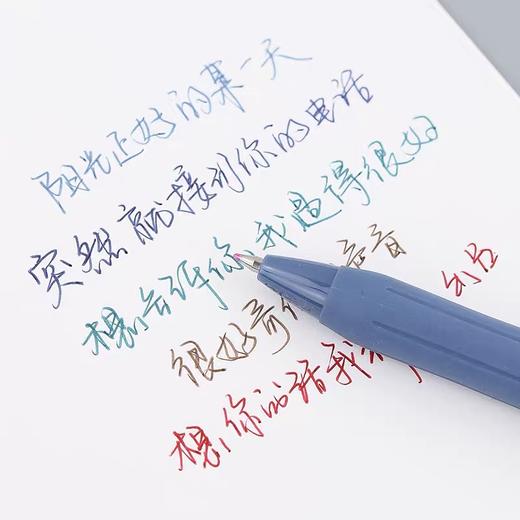 阳光正好的某一天
突然就接到你的电话
想告诉你我过得很好
很好奇 音
想你的话我